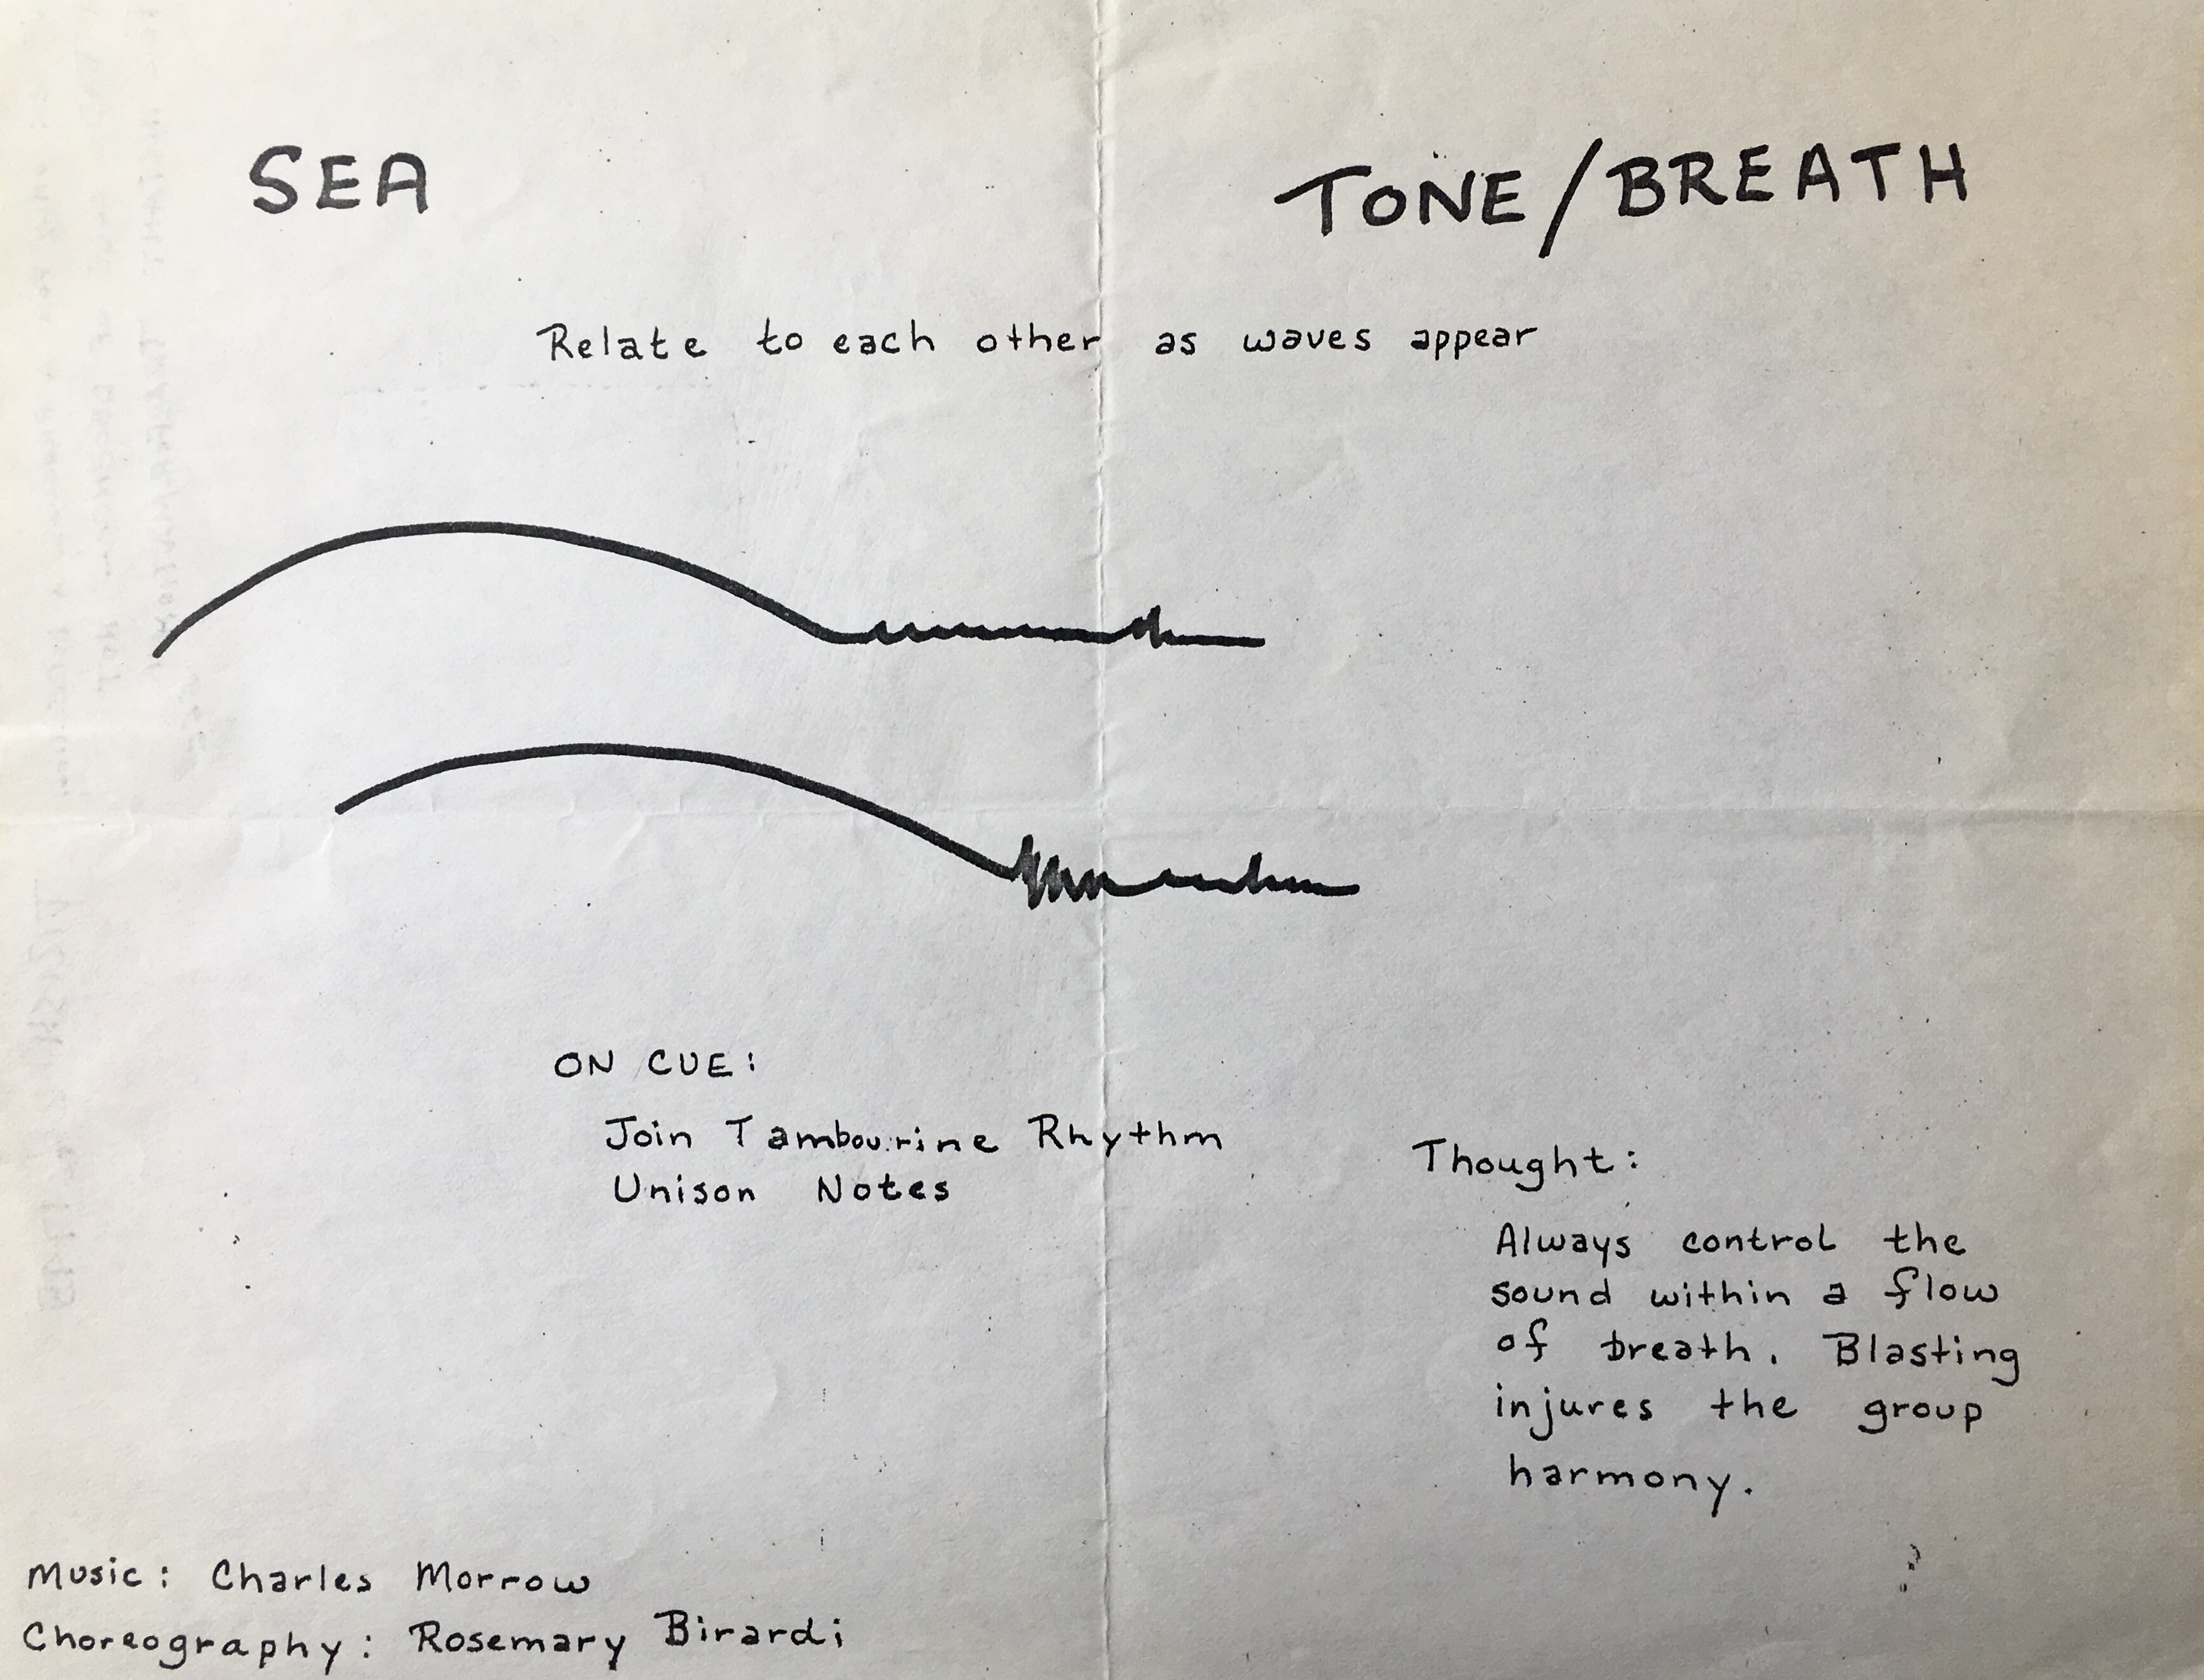 SEA TONE/BREATH
Relate to each other as waves appear
ON CUE:
Join Tambourine Rhythm
Unison Notes
Thought:
Always control the
sound within a flow
of breath. Blasting
injures the group
harmony.
Music: Charles Morrow
Choreography: Rosemary Birardi